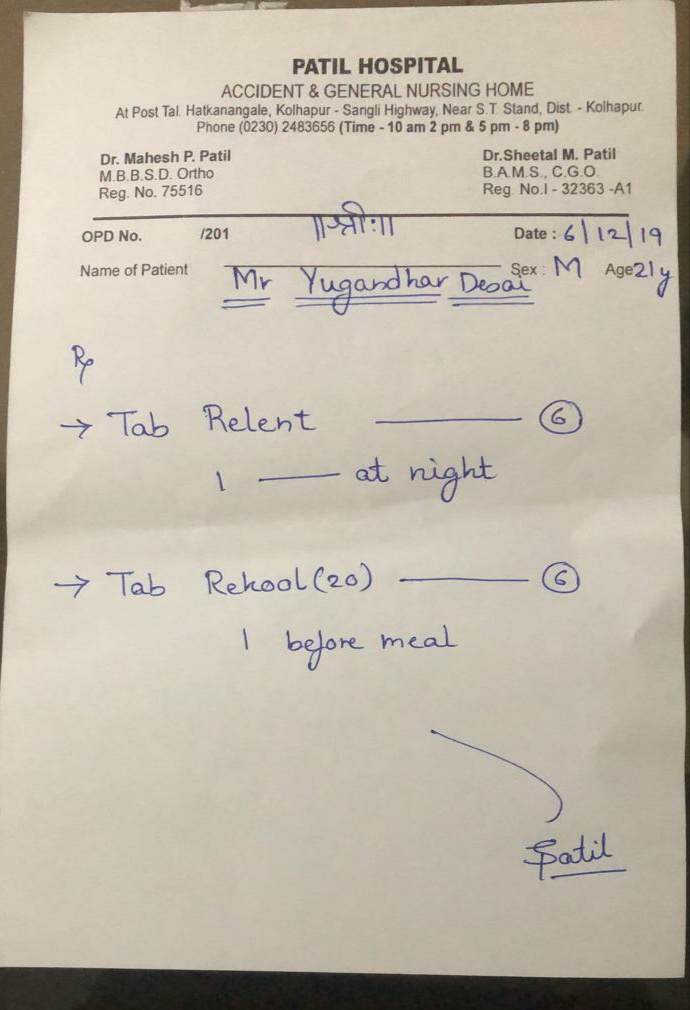 PATIL HOSPITAL
ACCIDENT & GENERAL NURSING HOME
At Post Tal. Hatkanangale, Kolhapur - Sangli Highway, Near S.T. Stand, Dist. - Kolhapur.
Phone (0230) 2483656 (Time - 10 am 2 pm & 5 pm - 8 pm)
Dr. Mahesh P. Patil Dr.Sheetal M. Patil
M.B.B.S.D. Ortho B.A.M.S., C.G.O.
Reg. No. 75516 Reg. No.I - 32363 -A1
OPD No. /201 ||श्रीः|| Date : 6/12/19
Name of Patient Mr Yugandhar Desai Sex : M Age 21y
Rp
→ Tab Relent — 6
1 — at night
→ Tab Rekool (20) — 6
1 before meal
SPatil